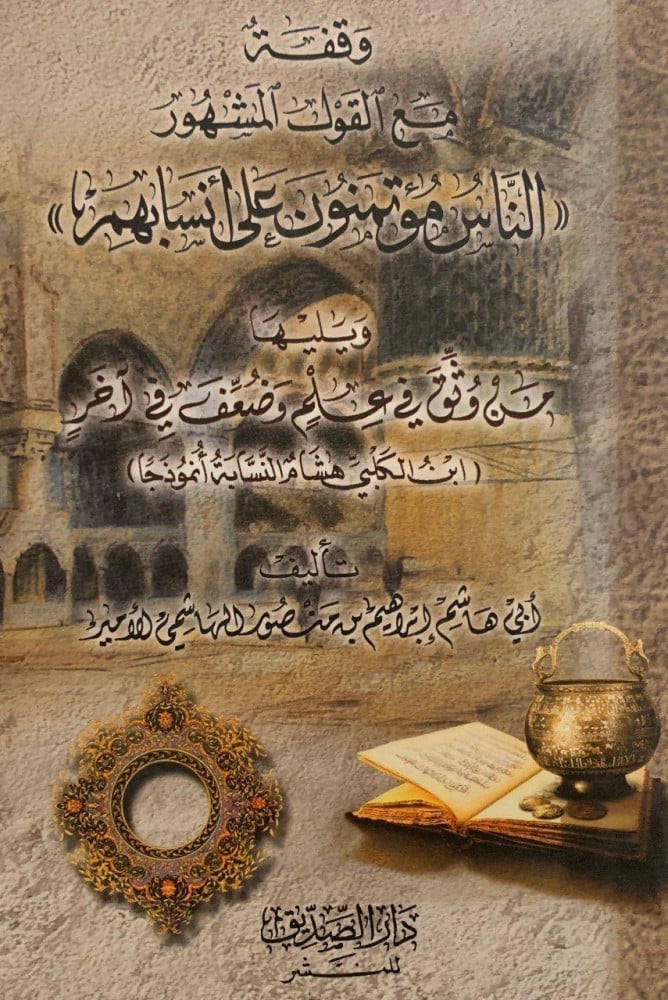 وَقفَةٌ
مَعَ القَولِ المَشهُور
«النَّاسُ مُؤتَمَنُونَ عَلَى أَنسَابِهِم»
وَيَليهَا
مَنْ وُثِّقَ فِي عِلْمٍ وَضُعِّفَ فِي آخَرٍ
(ابْنُ الكَلْبِيِّ هِشَامُ النَّسَّابَةُ أُنمُوذَجًا)
تَأليف
أَبِي هَاشِم إِبرَاهِيم بن مَنصُور الهَاشِمِيّ الأَمِير
دَارُ الصِّدِّيق
للنَّشر